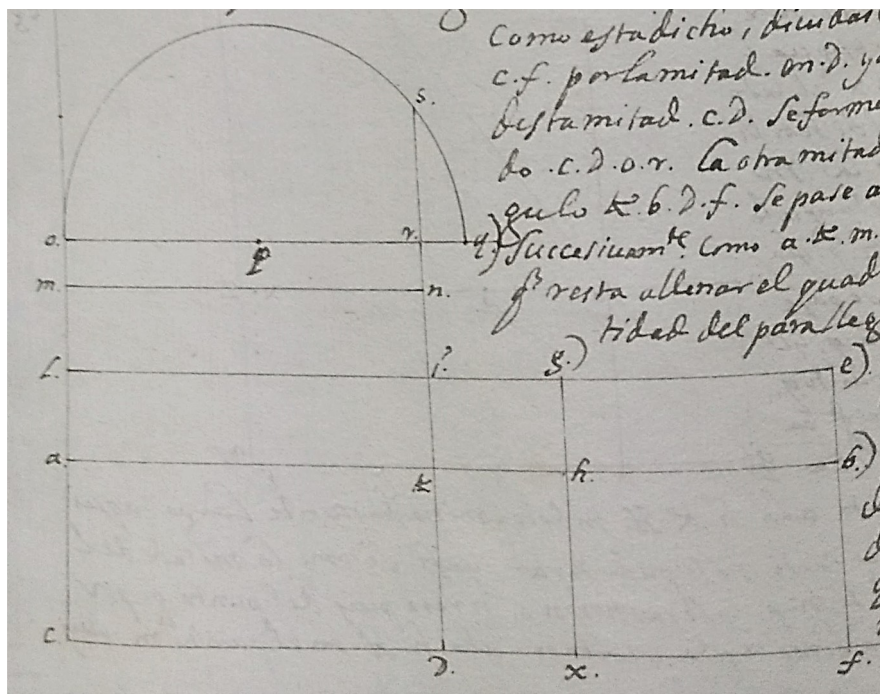 Como estadicho, diuidas
c.f. por la mitad. en .D. y
desta mitad. c.D. Se forme
do .c.D.o.r. La otra mitad
gulo k.b.D.f. Se pase a
Successiuamte. como a.k.m.
qe resta allenar el quad
tidad del paralleg
s.
o.
p
r.
q)
m.
n.
l.
i.
g.)
e).
a.
k
h.
b.)
c.
D.
x.
f.